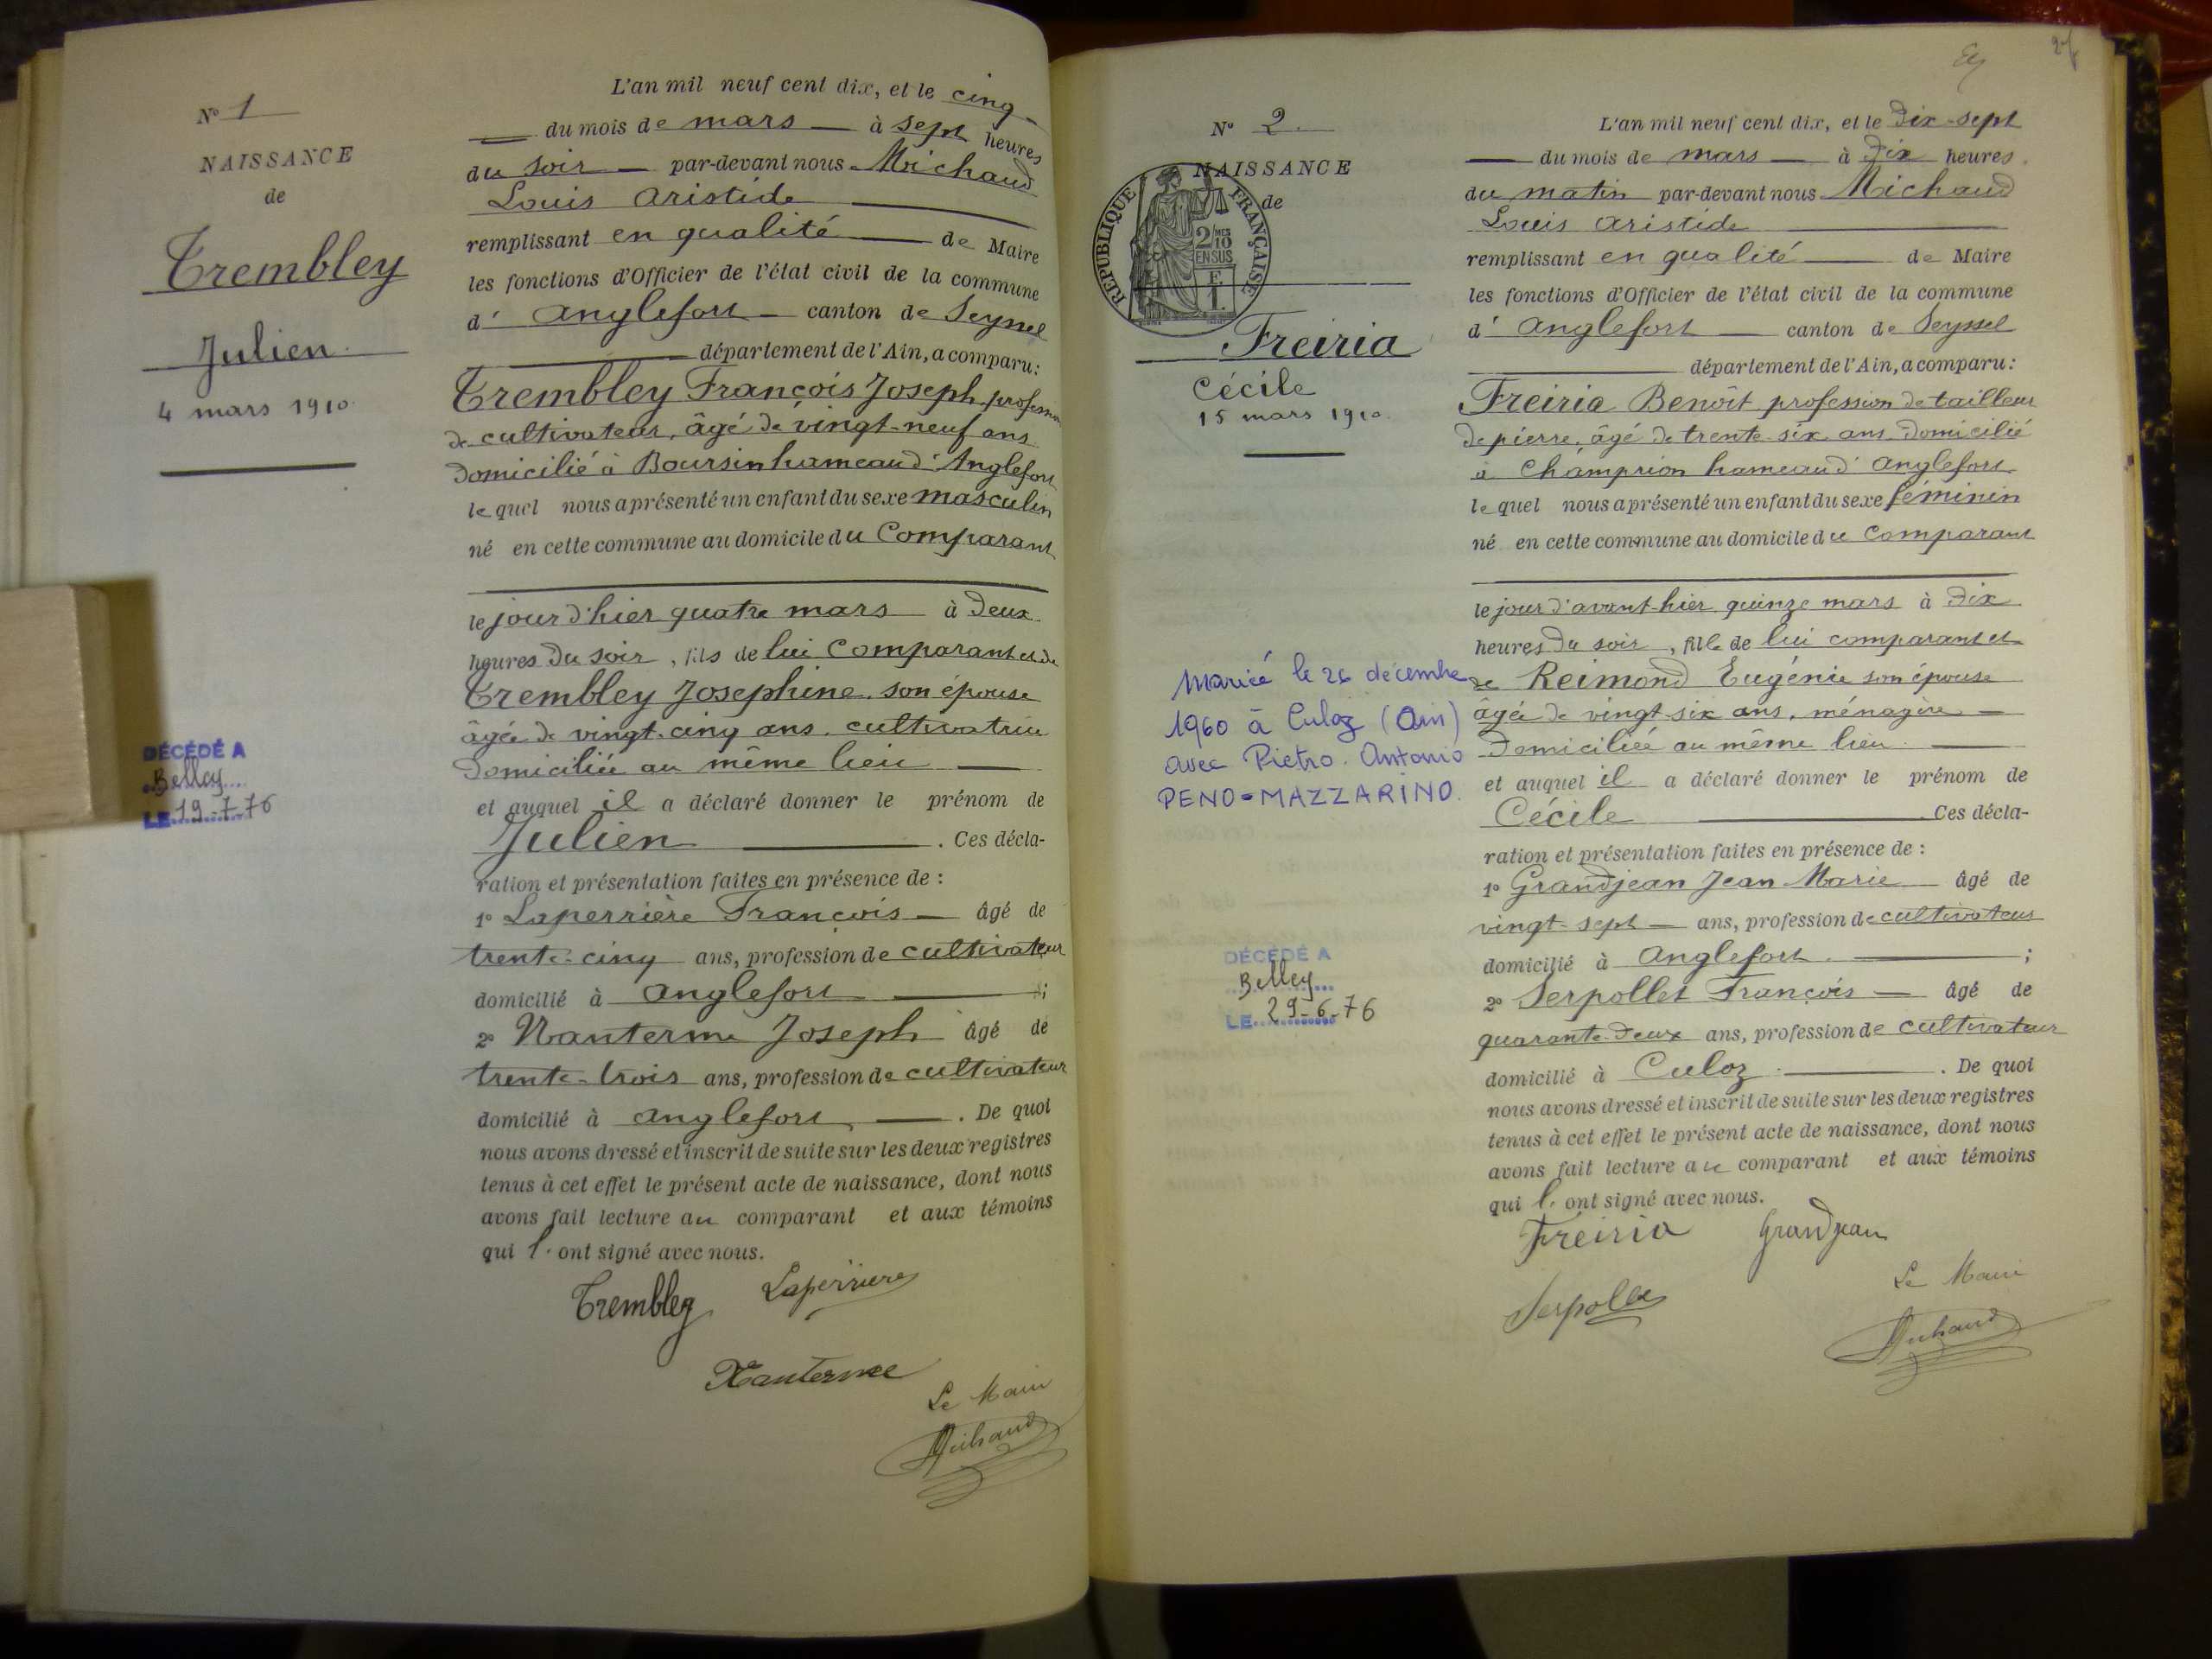 N° 1
NAISSANCE
de
Trembley
Julien
4 mars 1910
DÉCÉDÉ A
Belley
LE 19-7-76
L'an mil neuf cent dix, et le cinq
du mois de mars à sept heures
du soir par-devant nous Michaud
Louis Aristide
remplissant en qualité de Maire
les fonctions d'Officier de l'état civil de la commune
d' Anglefort canton de Seyssel
département de l'Ain, a comparu:
Trembley François Joseph profession
de cultivateur, âgé de vingt-neuf ans
domicilié à Boursin hameau d'Anglefort
le quel nous a présenté un enfant du sexe masculin
né en cette commune au domicile du Comparant
le jour d'hier quatre mars à deux
heures du soir, fils de lui Comparant et de
Trembley Josephine son épouse
âgée de vingt-cinq ans, cultivatrice
domiciliée au même lieu
et auquel il a déclaré donner le prénom de
Julien. Ces décla-
ration et présentation faites en présence de :
1° Laperrière François âgé de
trente-cinq ans, profession de cultivateur
domicilié à Anglefort ;
2° Nanterme Joseph âgé de
trente-trois ans, profession de cultivateur
domicilié à Anglefort. De quoi
nous avons dressé et inscrit de suite sur les deux registres
tenus à cet effet le présent acte de naissance, dont nous
avons fait lecture au comparant et aux témoins
qui l'ont signé avec nous.
Trembley Laperriere
Nanterme
Le Maire
Michaud
N° 2
NAISSANCE
de
REPUBLIQUE FRANÇAISE
2/10 MES
EN SUS
E
1.
Freiria
Cécile
15 mars 1910
Mariée le 26 décembre
1960 à Culoz (Ain)
avec Pietro. Antonio
PENO-MAZZARINO.
DÉCÉDÉ A
Belley
LE 29-6-76
L'an mil neuf cent dix, et le dix-sept
du mois de mars à dix heures
du matin par-devant nous Michaud
Louis Aristide
remplissant en qualité de Maire
les fonctions d'Officier de l'état civil de la commune
d' Anglefort canton de Seyssel
département de l'Ain, a comparu:
Freiria Benoit profession de tailleur
de pierre, âgé de trente-six ans domicilié
à Champrion hameau d'Anglefort
le quel nous a présenté un enfant du sexe féminin
né en cette commune au domicile du Comparant
le jour d'avant-hier quinze mars à dix
heures du soir, fille de lui comparant et
de Reimond Eugénie son épouse
âgée de vingt-six ans, ménagère
domiciliée au même lieu
et auquel il a déclaré donner le prénom de
Cécile. Ces décla-
ration et présentation faites en présence de :
1° Grandjean Jean Marie âgé de
vingt-sept ans, profession de cultivateur
domicilié à Anglefort ;
2° Serpollet François âgé de
quarante-deux ans, profession de cultivateur
domicilié à Culoz. De quoi
nous avons dressé et inscrit de suite sur les deux registres
tenus à cet effet le présent acte de naissance, dont nous
avons fait lecture au comparant et aux témoins
qui l'ont signé avec nous.
Freiria Grandjean
Serpollet
Le Maire
Michaud